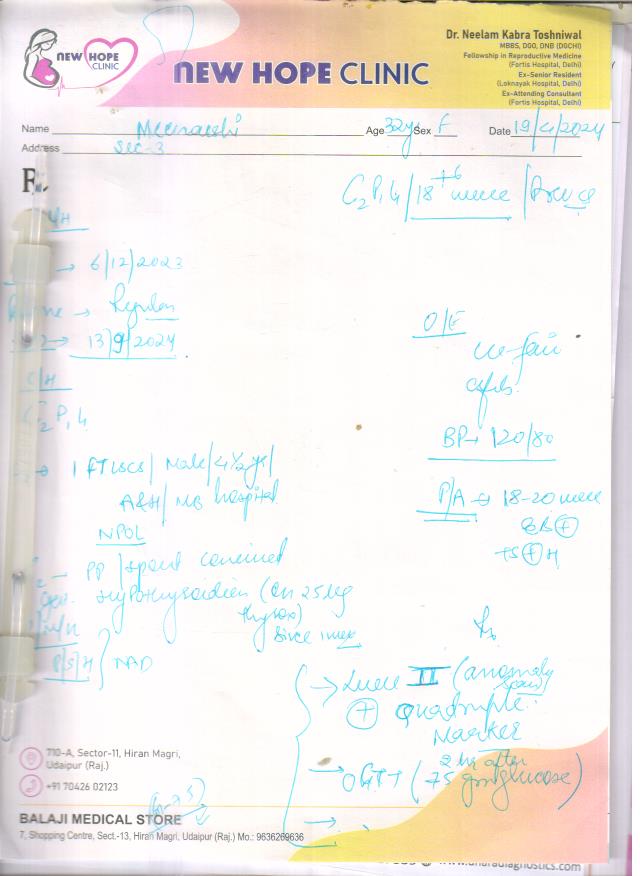 NEW HOPE
CLINIC
NEW HOPE CLINIC
Dr. Neelam Kabra Toshniwal
MBBS, DGO, DNB (DGCHI)
Fellowship in Reproductive Medicine
(Fortis Hospital, Delhi)
Ex-Senior Resident
(Loknayak Hospital, Delhi)
Ex-Attending Consultant
(Fortis Hospital, Delhi)
Name Age 32yr Sex F Date 19/4/2024
Address Sec-3
G2P1L1 / 18+6 week /
→ 6/12/2023
→ Regular
→ 13/9/2024
O/H
P1L1
→ 1 FTLSCS / Male / 4½ yr /
A&H / MB hospital
NPOL
PP / spont conceived
Hypothyroidism (on 25 µg
thyrox)
since
P/S/H } NAD
O/E
GC-fair
afeb.
BP → 120/80
P/A → 18-20 week
Level II (anomaly
scan)
+ Quadruple
Marker
→ OGTT (2 hr after
75 gm glucose)
→
710-A, Sector-11, Hiran Magri,
Udaipur (Raj.)
+91 70426 02123
BALAJI MEDICAL STORE
7, Shopping Centre, Sect.-13, Hiran Magri, Udaipur (Raj.) Mo.: 9636269636